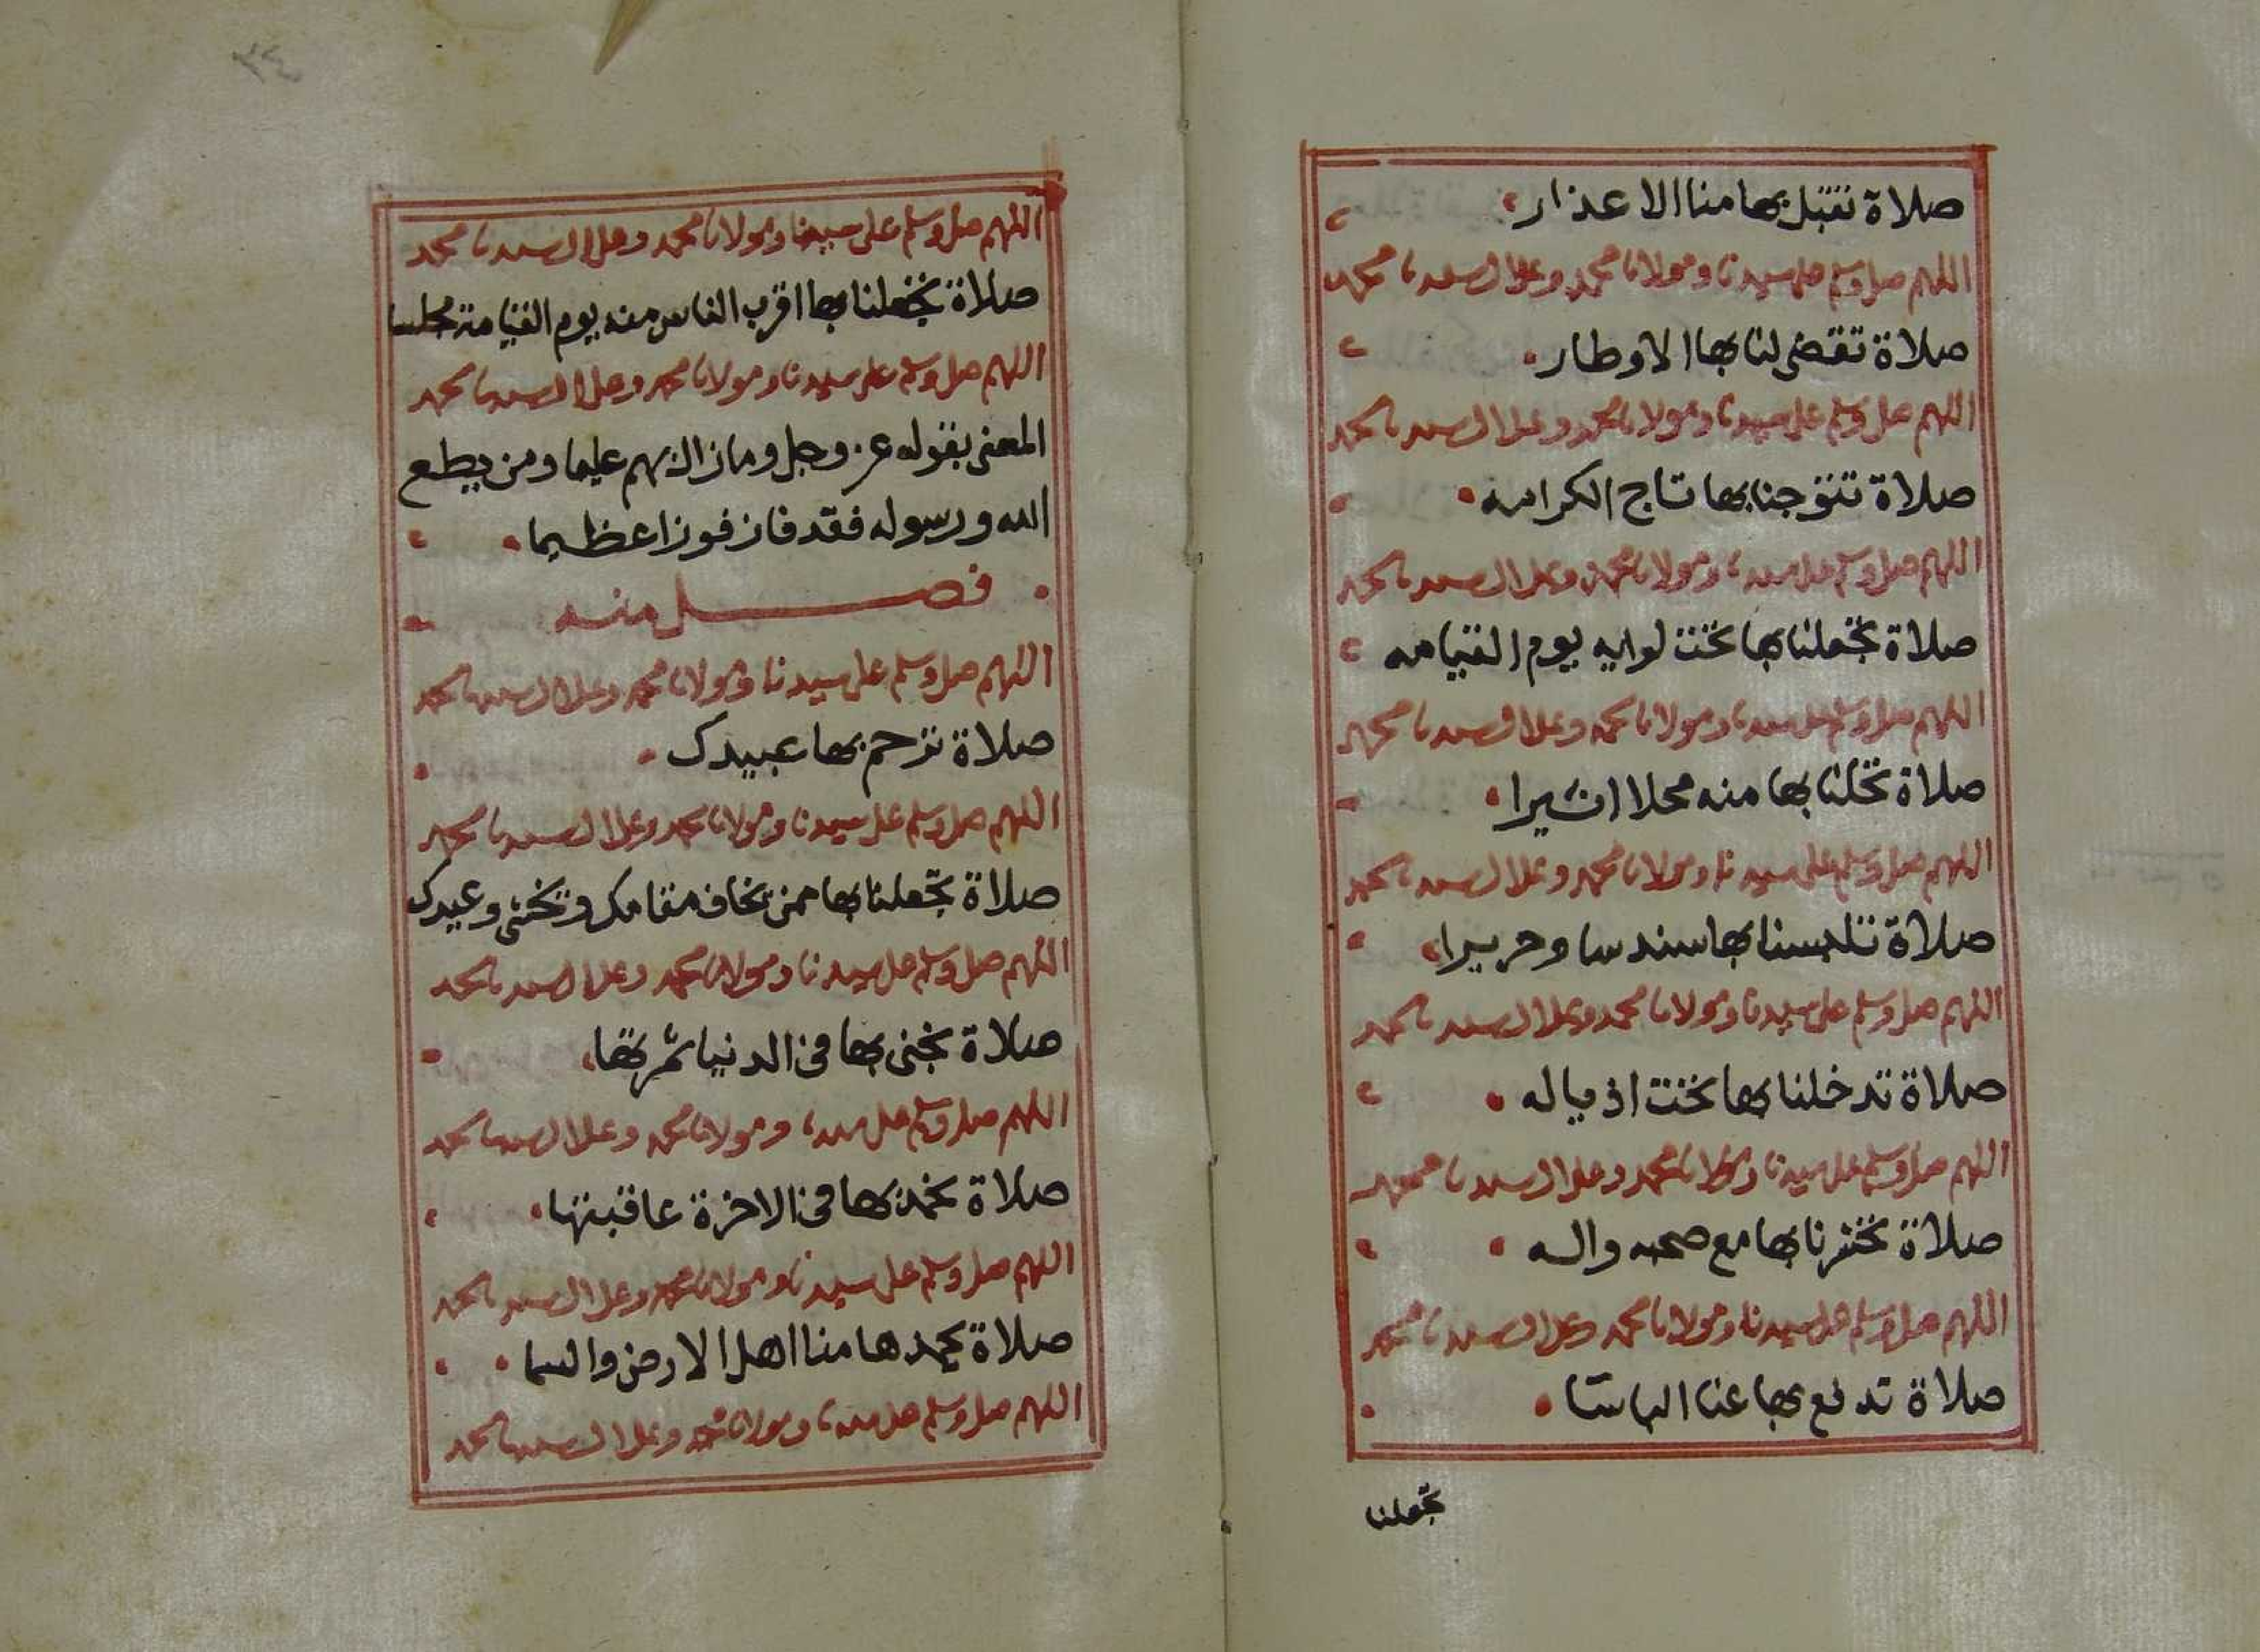 صلاة تتقبل بها منا الاعذار
اللهم صل وسلم على سيدنا ومولانا محمد وعلى ال سيدنا محمد
صلاة تقضى لنا بها الاوطار
اللهم صل وسلم على سيدنا ومولانا محمد وعلى ال سيدنا محمد
صلاة تتوجنا بها تاج الكرامه
اللهم صل وسلم على سيدنا ومولانا محمد وعلى ال سيدنا محمد
صلاة تجعلنا بها تحت لوايه يوم القيامه
اللهم صل وسلم على سيدنا ومولانا محمد وعلى ال سيدنا محمد
صلاة تحلنا بها منه محلا اثيرا
اللهم صل وسلم على سيدنا ومولانا محمد وعلى ال سيدنا محمد
صلاة تلبسنا بها سندسا وحريرا
اللهم صل وسلم على سيدنا ومولانا محمد وعلى ال سيدنا محمد
صلاة تدخلنا بها تحت اذياله
اللهم صل وسلم على سيدنا ومولانا محمد وعلى ال سيدنا محمد
صلاة تحشرنا بها مع صحبه واله
اللهم صل وسلم على سيدنا ومولانا محمد وعلى ال سيدنا محمد
صلاة تدفع بها عنا الباسا
تجعلنا
٣٤
اللهم صل وسلم على سيدنا ومولانا محمد وعلى ال سيدنا محمد
صلاة تجعلنا بها اقرب الناس منه يوم القيامة مجلسا
اللهم صل وسلم على سيدنا ومولانا محمد وعلى ال سيدنا محمد
المعنى بقوله عز وجل وما زادهم عليما ومن يطع
الله ورسوله فقد فاز فوزا عظيما
فصل منه
اللهم صل وسلم على سيدنا ومولانا محمد وعلى ال سيدنا محمد
صلاة ترحم بها عبيدك
اللهم صل وسلم على سيدنا ومولانا محمد وعلى ال سيدنا محمد
صلاة تجعلنا بها ممن يخاف مقامك ويخشى وعيدك
اللهم صل وسلم على سيدنا ومولانا محمد وعلى ال سيدنا محمد
صلاة نجنى بها فى الدنيا ثمرتها
اللهم صل وسلم على سيدنا ومولانا محمد وعلى ال سيدنا محمد
صلاة نحمد بها فى الاخرة عاقبتها
اللهم صل وسلم على سيدنا ومولانا محمد وعلى ال سيدنا محمد
صلاة يحمدها منا اهل الارض والسما
اللهم صل وسلم على سيدنا ومولانا محمد وعلى ال سيدنا محمد